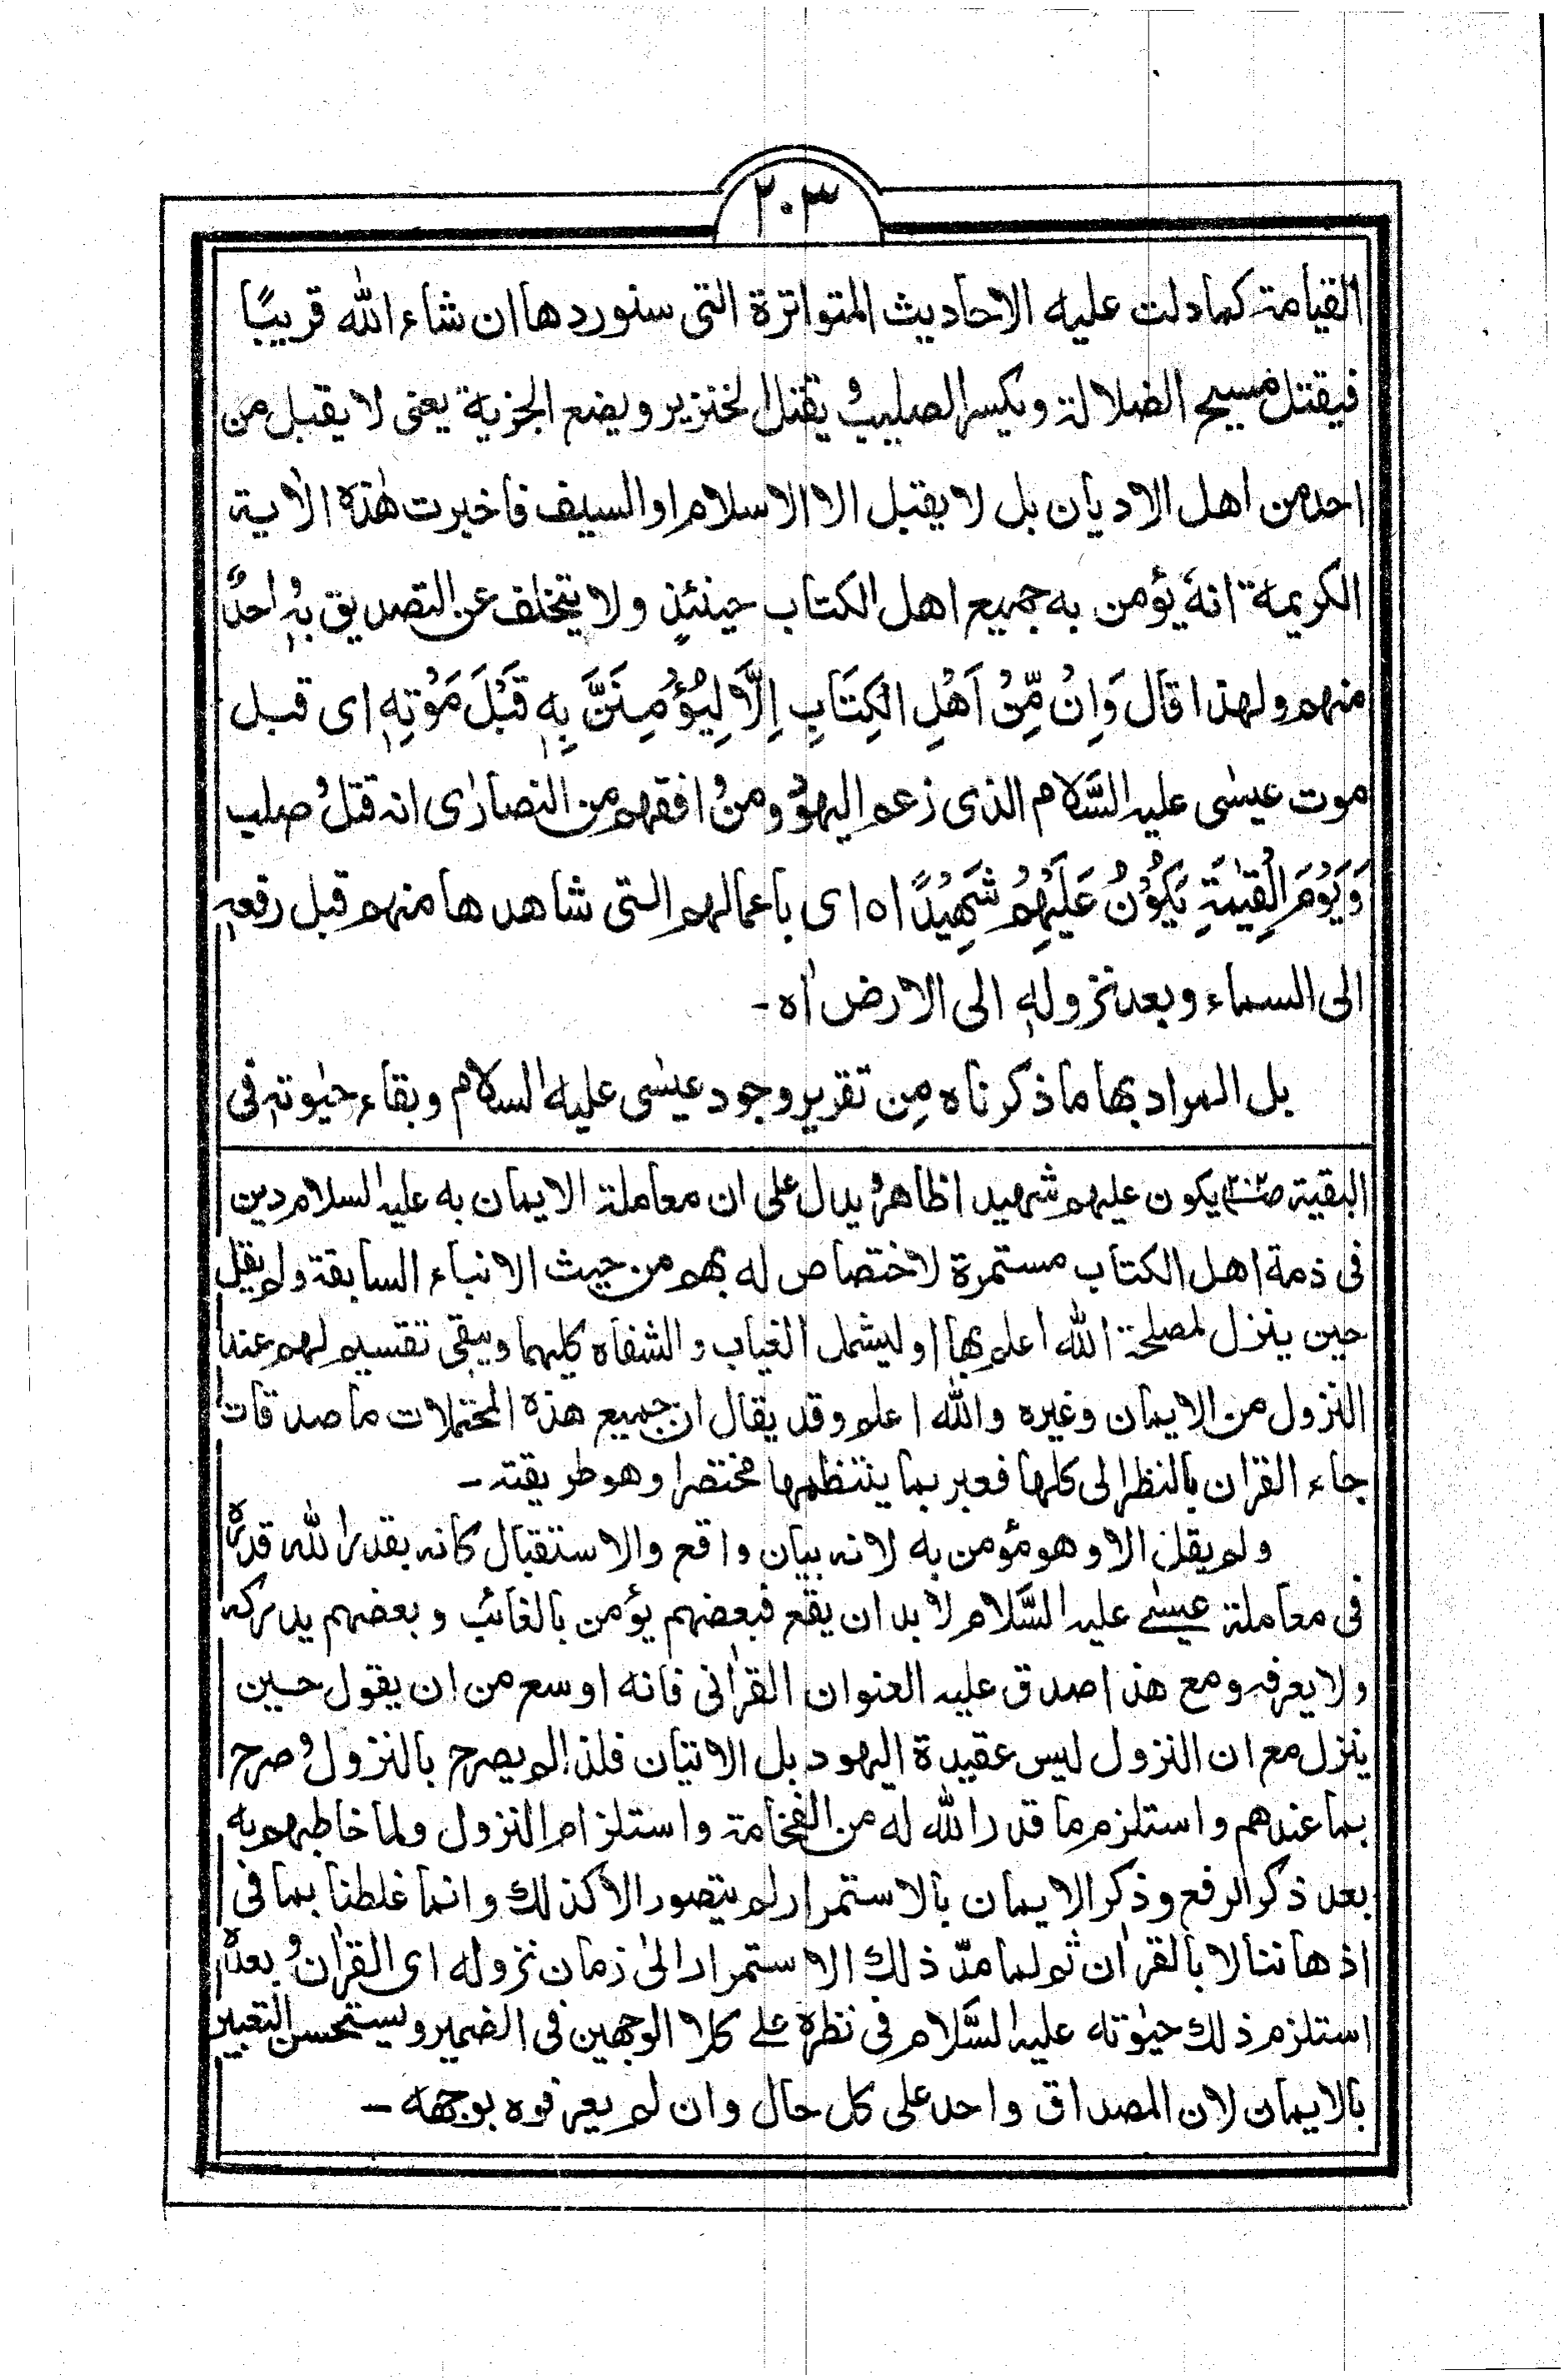 ٢٠٣
القيامة كما دلت عليه الاحاديث المتواترة التى سنوردها ان شاء الله قريبًا
فيقتل مسيح الضلالة ويكسر الصليب و يقتل الخنزير ويضع الجزية يعنى لا يقبل من
احد من اهل الاديان بل لا يقبل الا الاسلام او السيف فاخبرت هٰذه الاٰية
الكريمة انهٗ يؤمن به جميع اهل الكتاب حينئذٍ ولا يتخلف عن التصديق بهٖ احدٌ
منهم ولهذا قال وَاِنْ مِّنْ اَهْلِ الْكِتَابِ اِلَّا لَيُؤْمِنَنَّ بِهٖ قَبْلَ مَوْتِهٖ اى قبل
موت عيسٰى عليه السَّلام الذى زعم اليهود ومن وافقهم من النصارٰى انه قتل و صلب
وَيَوْمَ الْقِيٰمَةِ يَكُوْنُ عَلَيْهِمْ شَهِيْدًا اه اى باعمالهم التى شاهدها منهم قبل رفعهٖ
الى السماء وبعد نزولهٖ الى الارض اه ـ
بل المراد بها ما ذكرناه مِن تقرير وجود عيسٰى عليه السلام وبقاء حيٰوتهٖ فى
البقية ص٢٠٢ يكون عليهم شهيدا ظاهره يدل على ان معاملة الايمان به عليه السلام دين
فى ذمة اهل الكتاب مستمرة لاختصاص له بهم من حيث الانباء السابقة ولم يقل
حين ينزل لمصلحة الله اعلم بها او ليشمل الغياب والشفاه كليهما ويبقى تقسيم لهم عند
النزول من الايمان وغيره والله اعلم وقد يقال ان جميع هذه المحتملات ما صدقات
جاء القران بالنظر الى كلها فعبر بما ينتظمها مختصرا وهو طريقته ـ
ولم يقل الا وهو مؤمن به لانه بيان واقع والاستقبال كانه بقدر الله قدره
فى معاملة عيسٰے عليه السَّلام لا بد ان يقع فبعضهم يؤمن بالغائب وبعضهم يدركه
ولا يعرفه ومع هذا صدق عليه العنوان القراٰنى فانه اوسع من ان يقول حين
ينزل مع ان النزول ليس عقيدة اليهود بل الاتيان فلذا لم يصرح بالنزول و صرح
بما عندهم واستلزم ما قدر الله له من الفخامة واستلزام النزول ولما خاطبهم به
بعد ذكر الرفع وذكر الايمان بالاستمرار لم يتصور الا كذلك وانما غلطنا بما فى
اذهاننا لا بالقراٰن ثم لما مدّ ذلك الاستمرار الىٰ زمان نزوله اى القراٰن و بعده
استلزم ذلك حيٰوته عليه السَّلام فى نظره علے كلا الوجهين فى الضمير ويستحسن التعبير
بالايمان لان المصداق واحد على كل حال وان لم يعرفوه بوجهه ـ